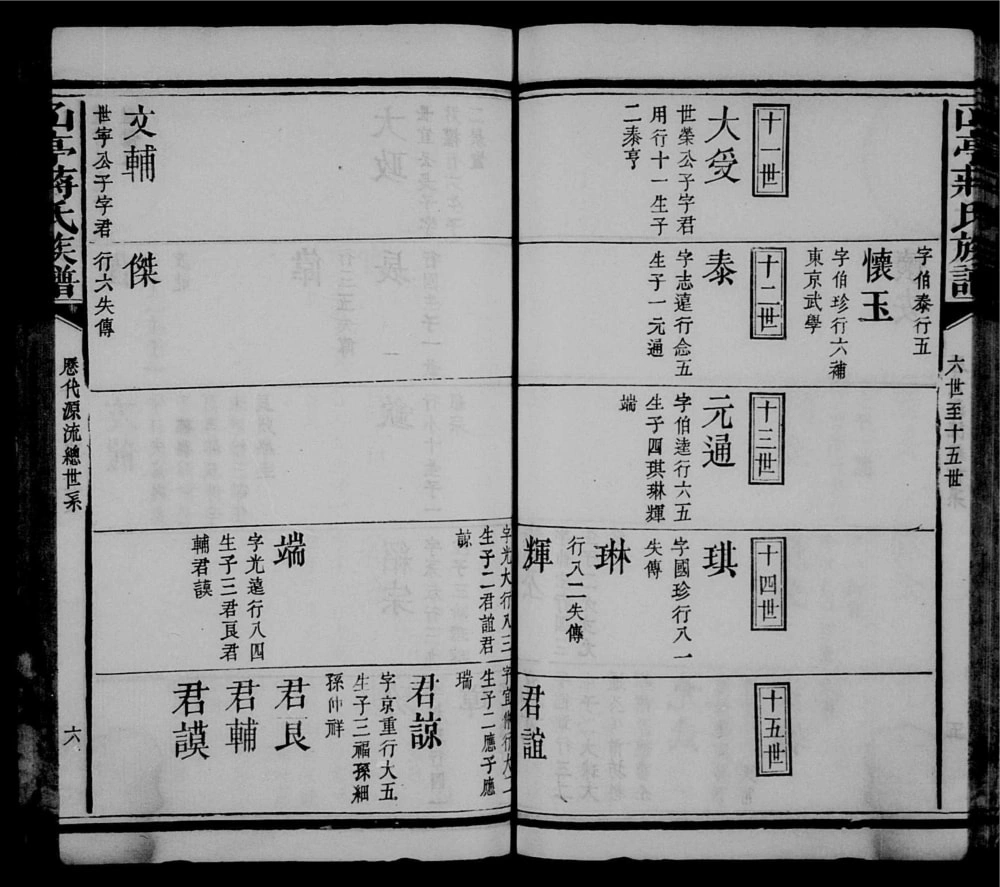 亭蔣氏族譜
六世至十五世
字伯泰行五
懷玉
字伯珍行六補
東京武學
十一世
大受
世榮公子字君
用行十一生子
二泰亨
十二世
泰
字志遠行念五
生子一元通
十三世
元通
字伯逵行六五
生子四琪琳輝
端
十四世
琪
字國珍行八一
失傳
琳
行八二失傳
輝
字光大行八三
生子二君誼君
諒
端
字光遠行八四
生子三君良君
輔君謨
十五世
君誼
字宜行大二
生子二應子應
瑞
君諒
字京重行大五
生子三福孫細
孫仲祥
君良
君輔
君謨
文輔
世寧公子字君
傑
行六失傳
亭蔣氏族譜
歷代源流總世系
六